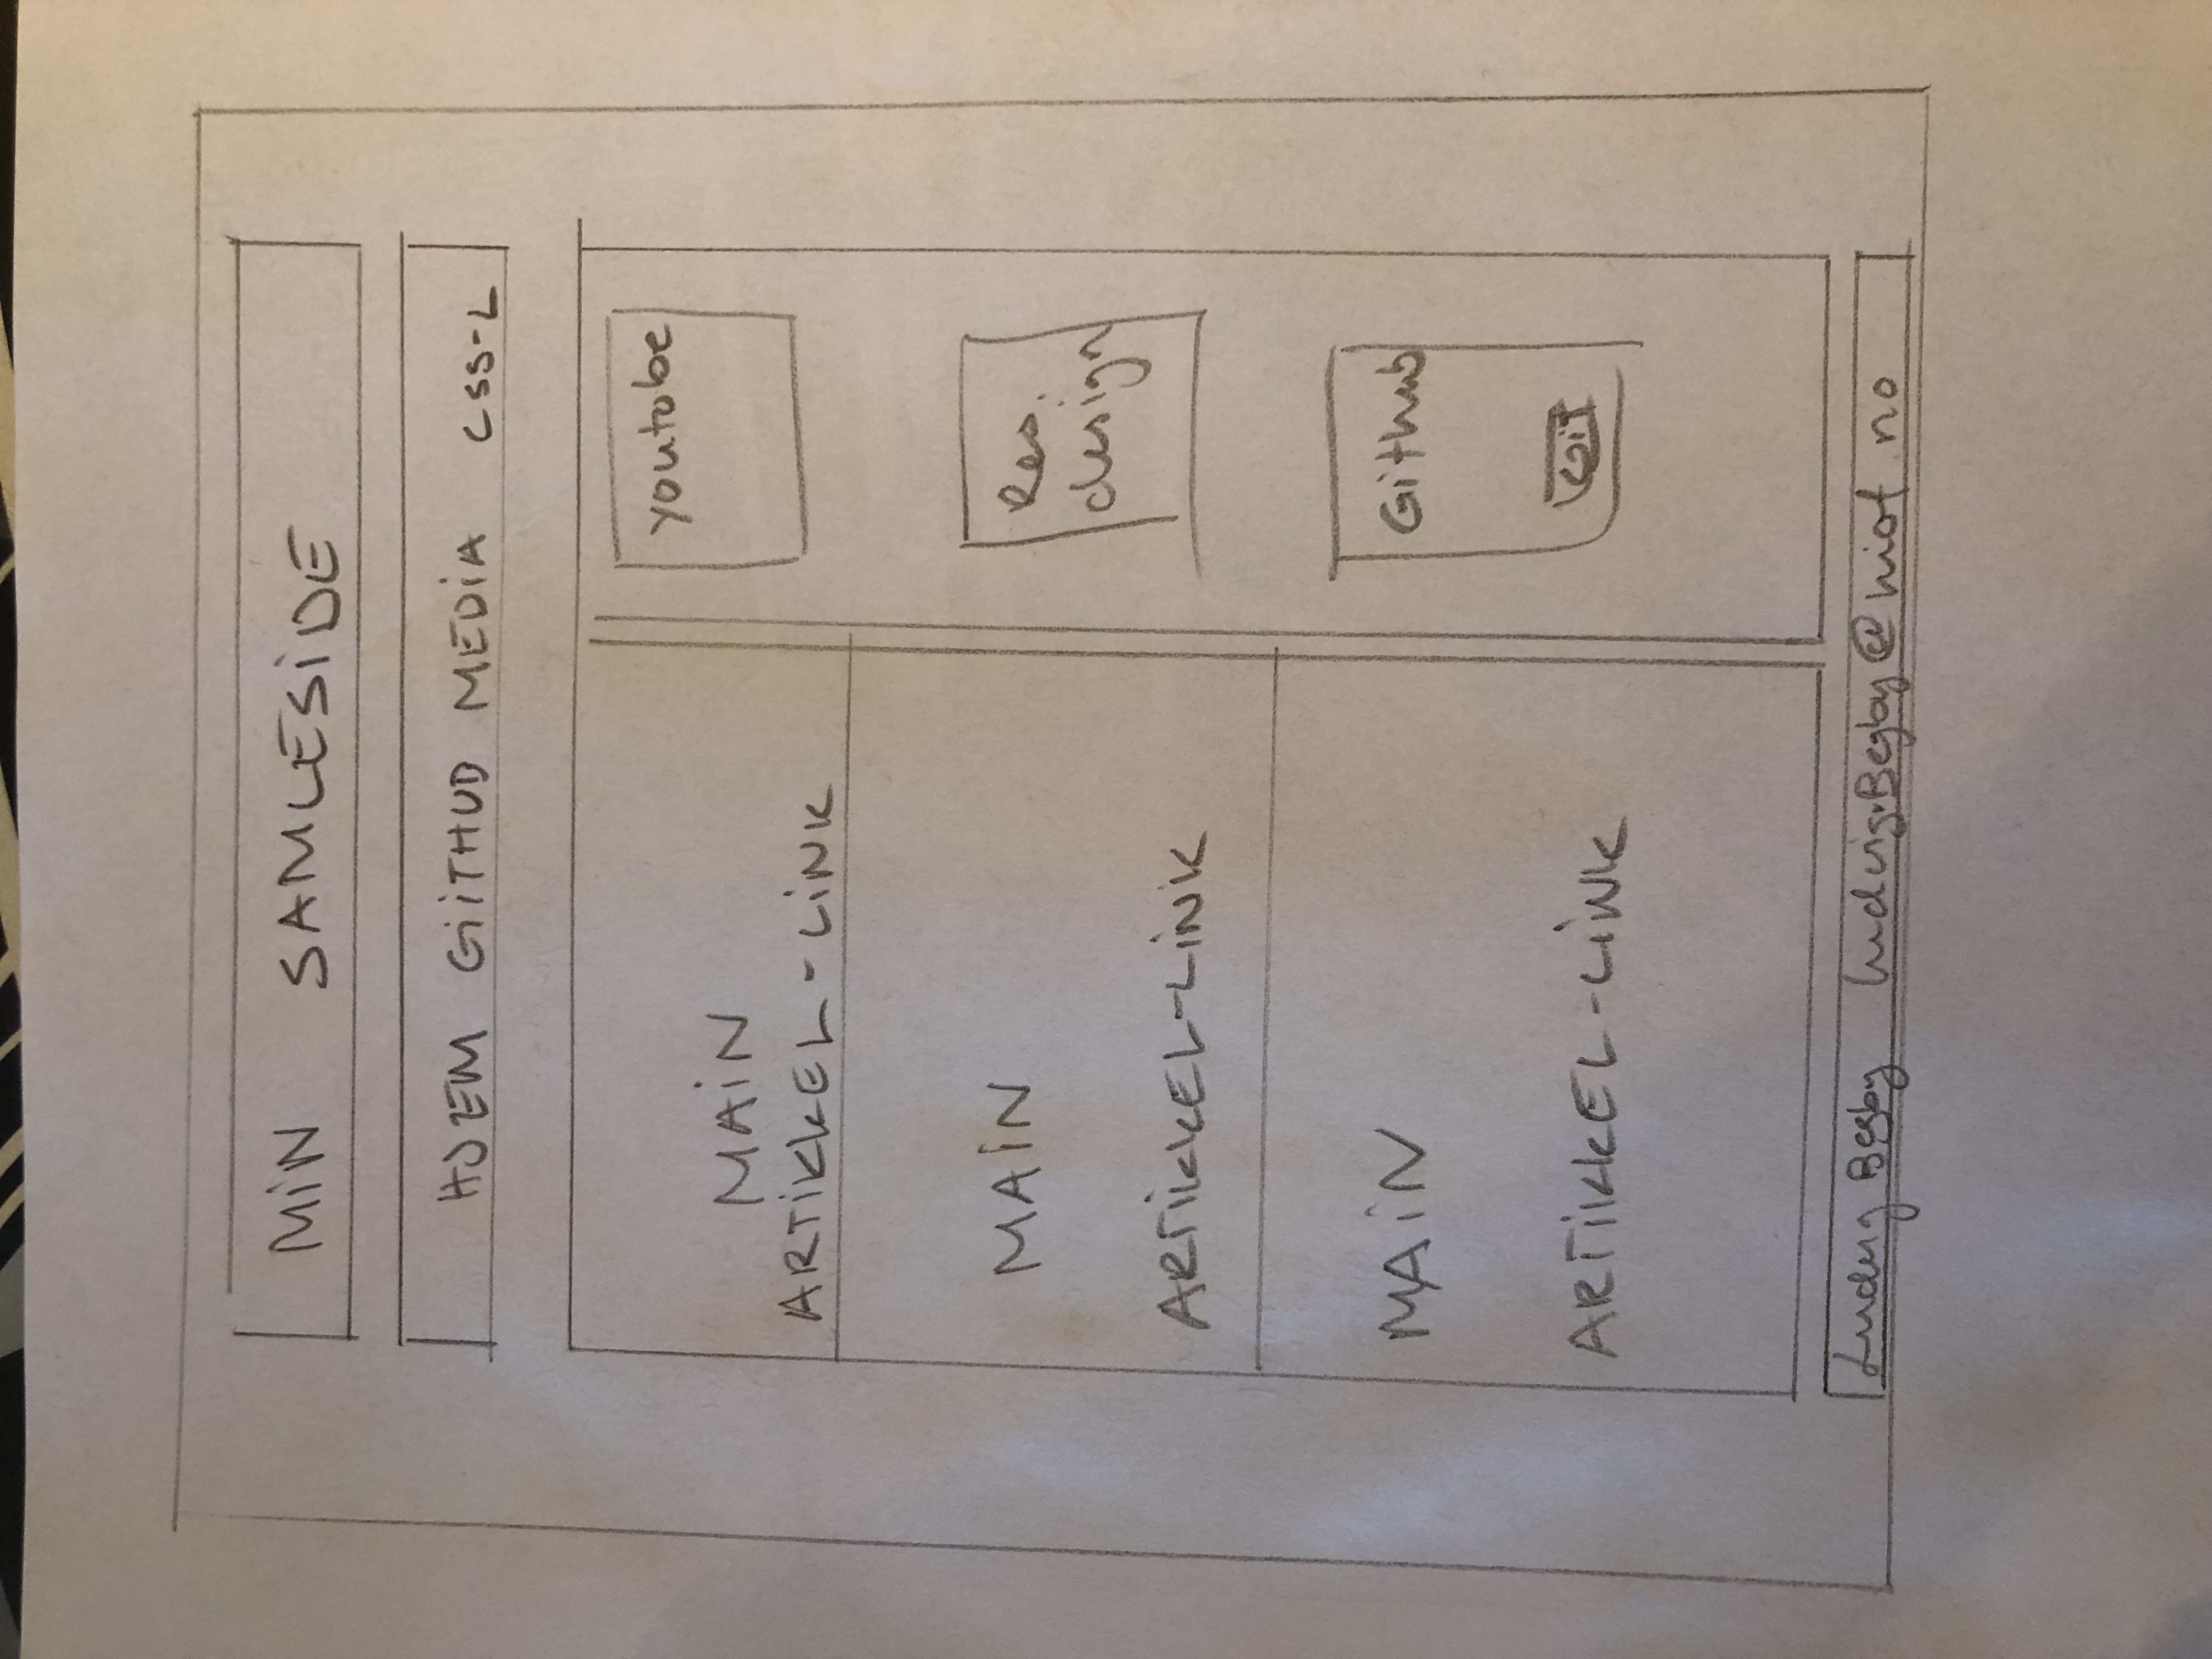 MiN SAMLESiDE
HJEM GiiTHUD MEDiA CSS-L
MAiN
ARTiKKEL-LiNK
MAiN
ARTiKKEL-LiNK
MAiN
ARTiKKEL-LiNK
Youtube
Res.
design
Github
GiT
Ludvig Begby ludvig.Begby@hiof.no